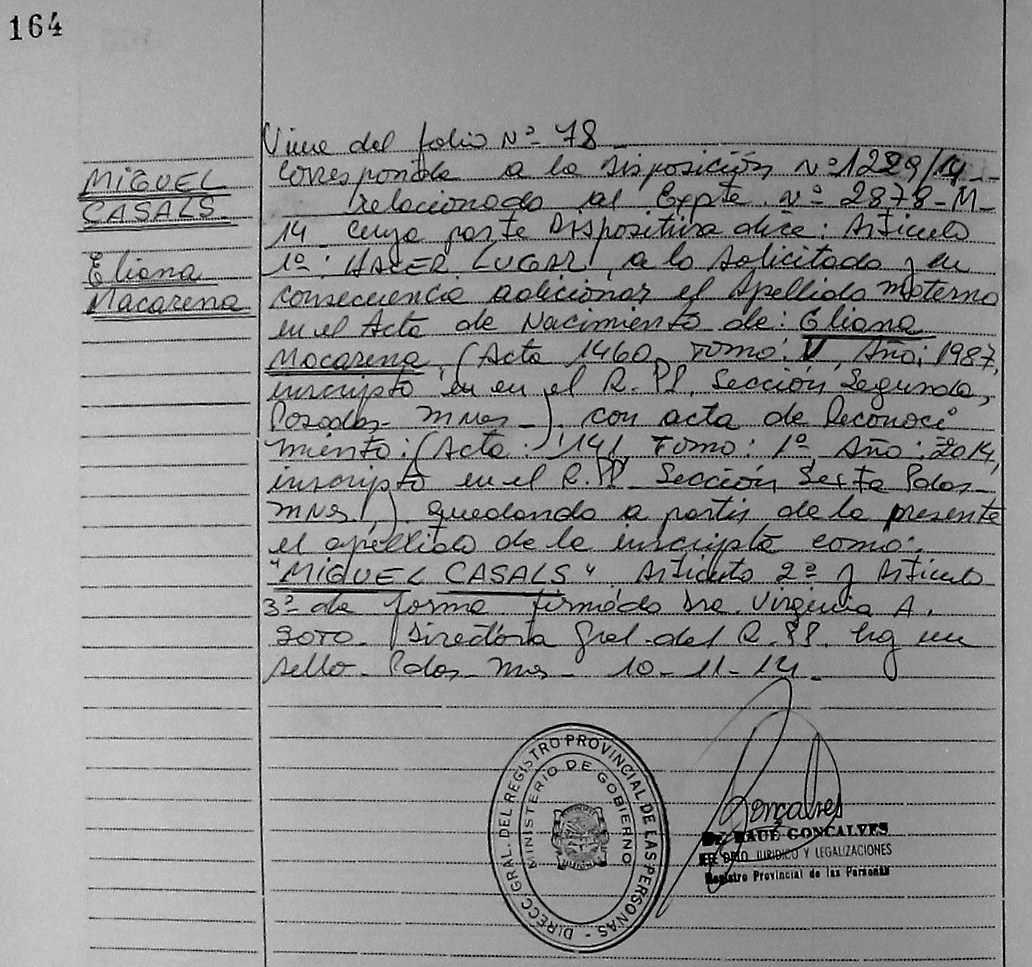 164
MIGUEL
CASALS.
Eliana
Macarena
Viene del folio Nº 78
Corresponde a la Disposición Nº 1229/14
relacionado al Expte. nº 2878-M-
14 cuya parte Dispositiva dice: Articulo
1º: HACER LUGAR, a lo solicitado y en
consecuencia adicionar el Apellido materno
en el Acta de Nacimiento de: Eliana
Macarena, (Acta 1460, Tomo: V, Año: 1987,
inscripto en en el R.PP. Sección Segunda,
Posadas- Mnes-). con acta de Reconoci
miento: (Acta: 141, Tomo: 1º, Año: 2014,
inscripto en el R.PP. Sección Sexta Pdas-
mnes.) quedando a partir de la presente
el apellido de la inscripta como:
"MIGUEL CASALS". Articulo 2º y Articulo
3º de forma firmado Dra. Virginia A.
Soto. Directora Gral. del R.PP. hay un
sello. Pdas. Mnes- 10-11-14.
DIRECC. GRAL. DEL REGISTRO PROVINCIAL DE LAS PERSONAS -
MINISTERIO DE GOBIERNO
Gonçalves
Dr. RAUL GONCALVES
JEFE DPTO JURIDICO Y LEGALIZACIONES
Registro Provincial de las Personas